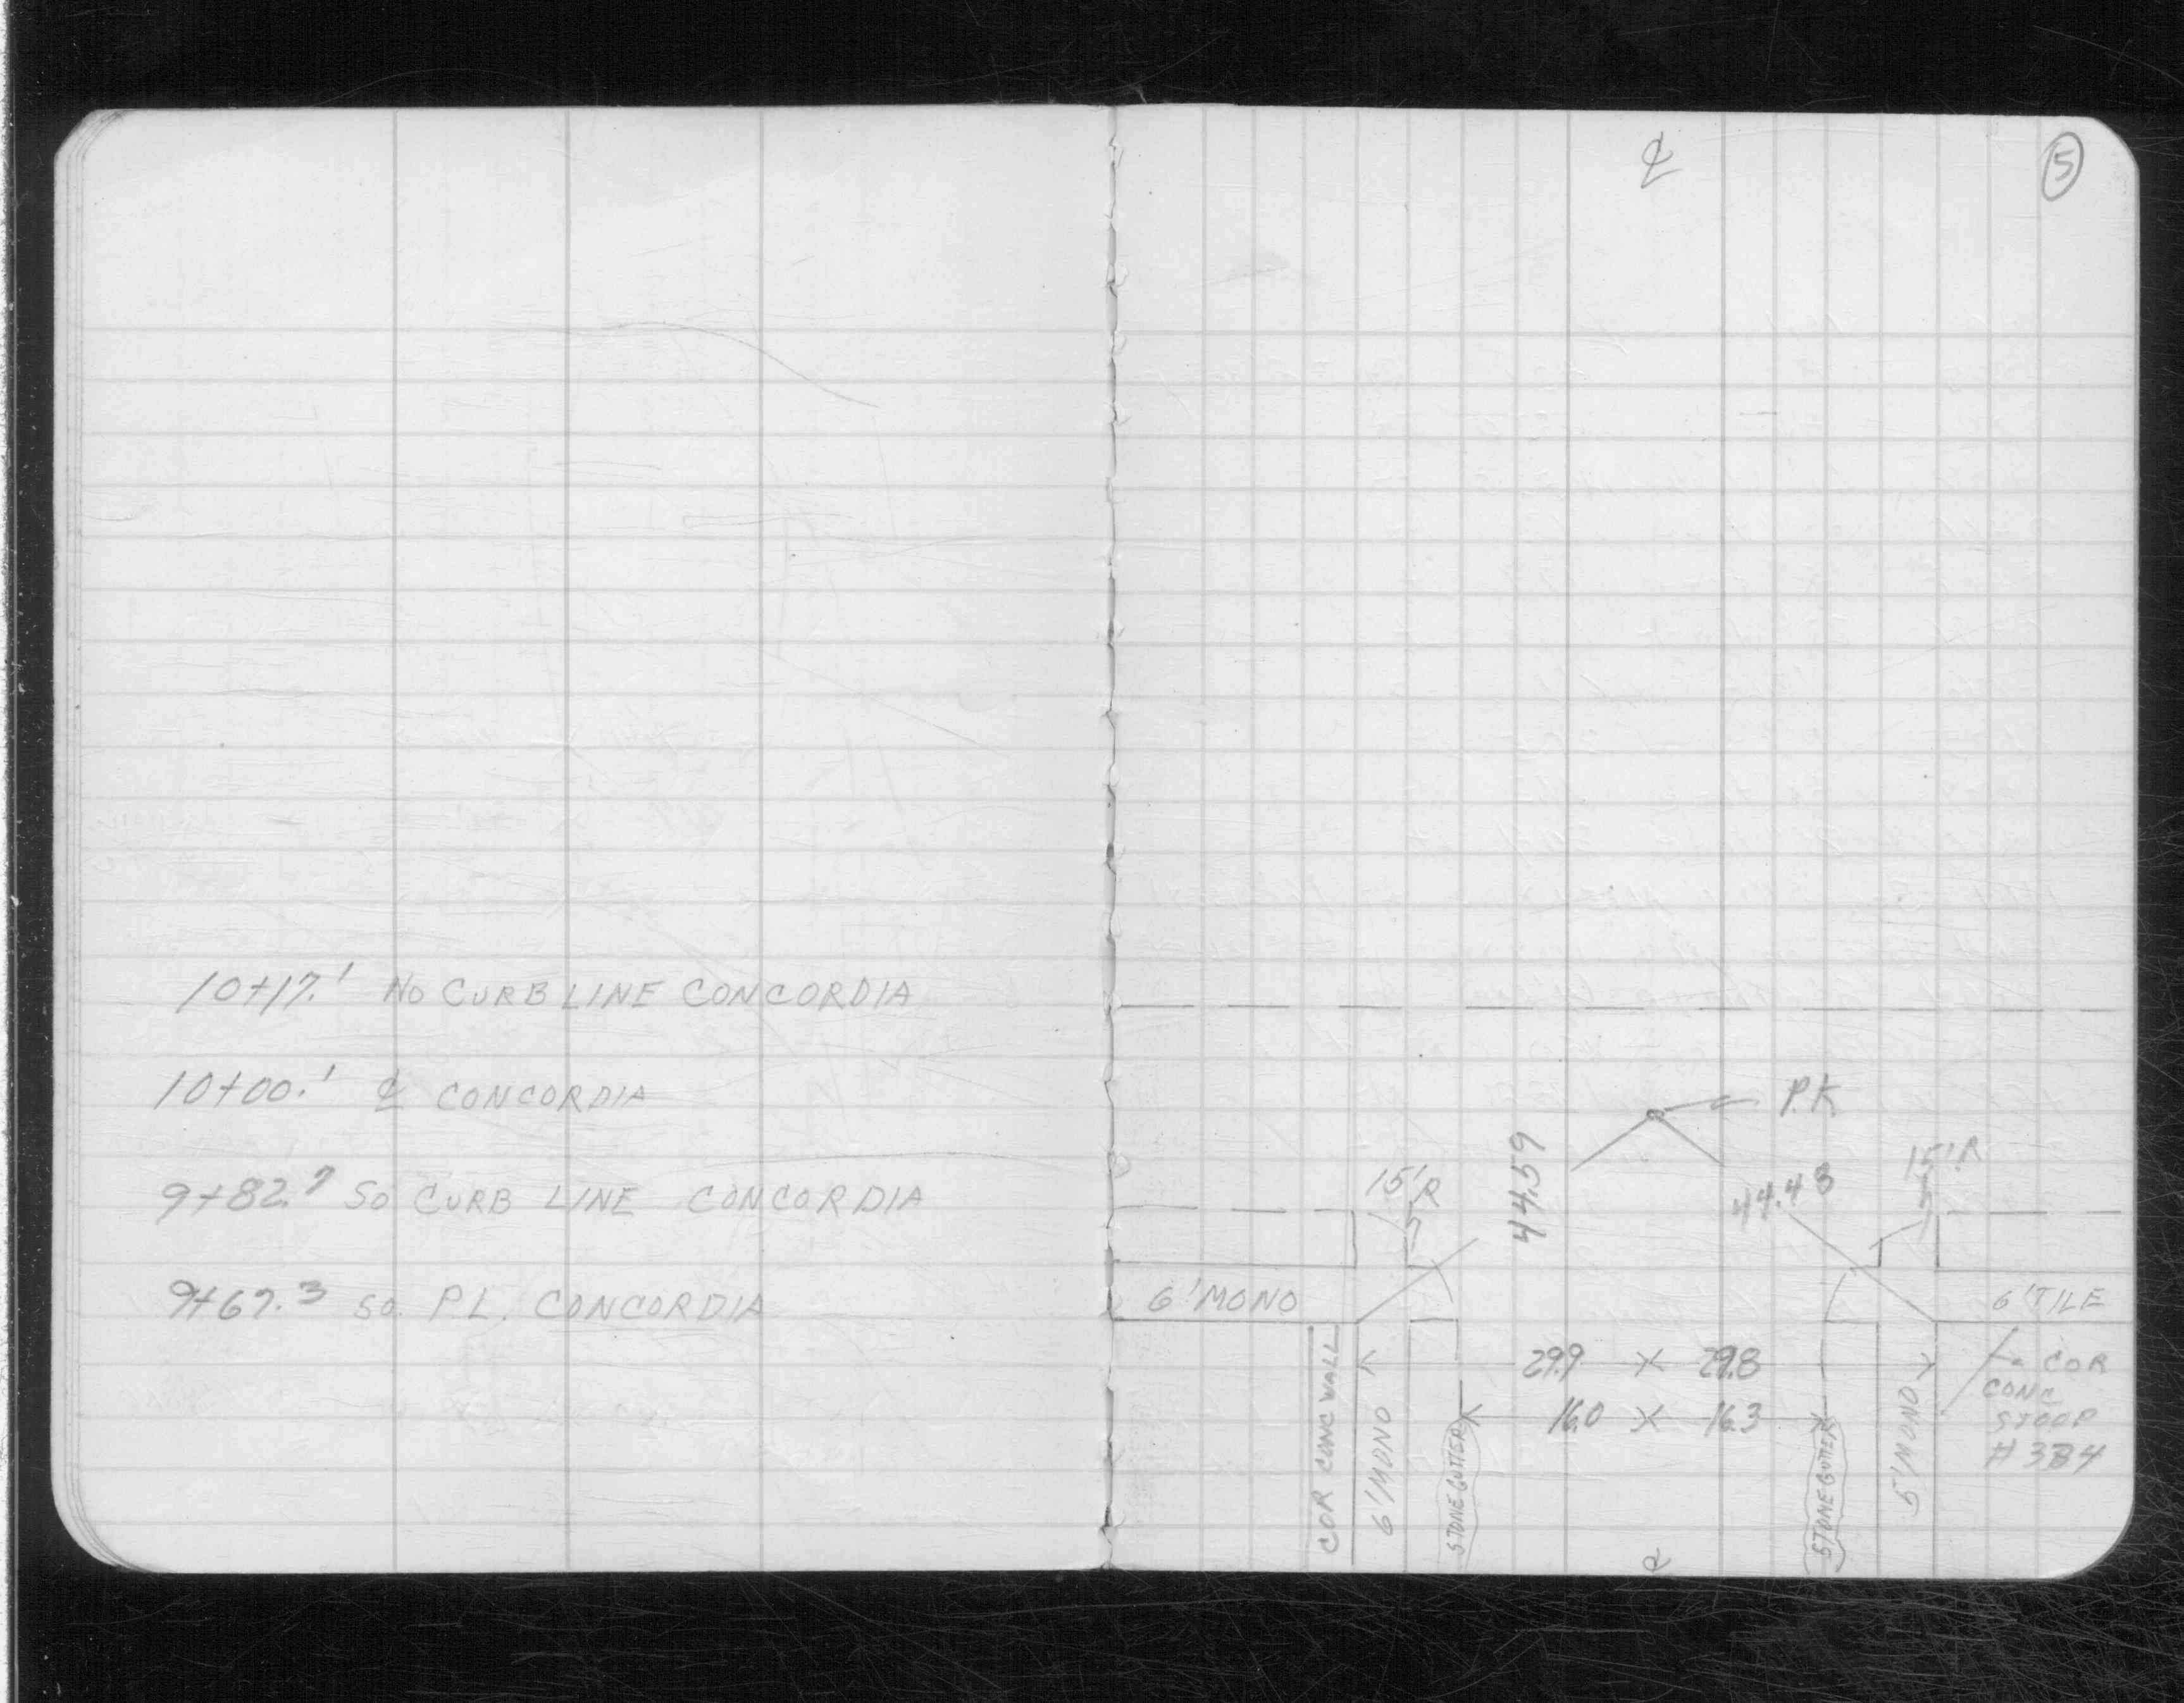 10+17.1 NO CURB LINE CONCORDIA
10+00.1 ℄ CONCORDIA
9+82.7 SO CURB LINE CONCORDIA
9+67.3 SO. P.L. CONCORDIA
℄
5
P.K.
15'R
44.59
44.43
15'R
6' MONO
6' TILE
29.9
29.8
16.0
16.3
COR CONC WALL
6' MONO
STONE GUTTER
STONE GUTTER
5' MONO
COR
CONC
STOOP
#384